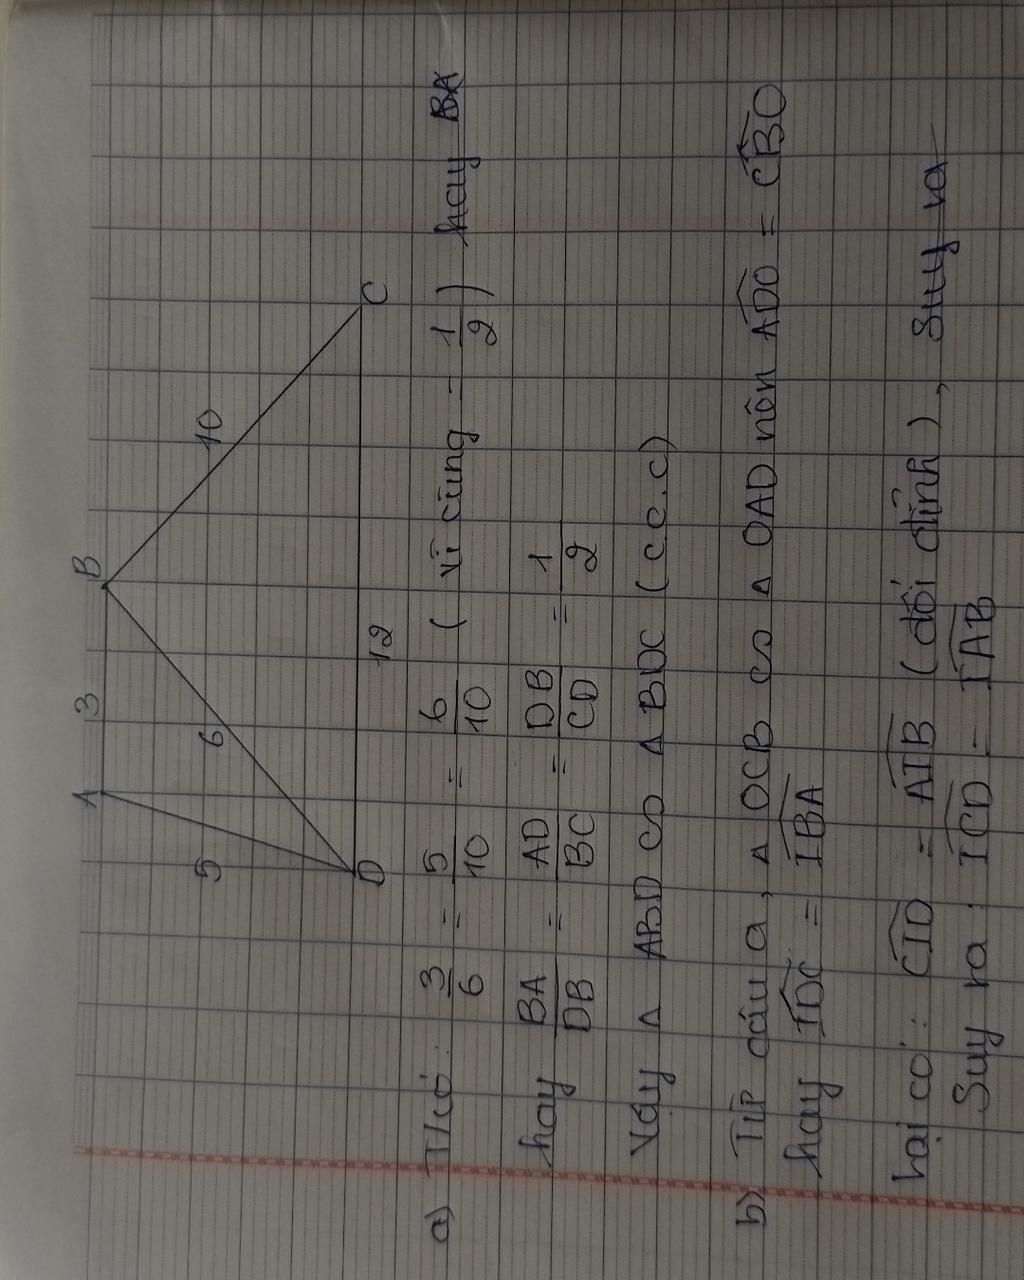 A 3 B
5 6 10
D 12 C
a) T/có: 3/6 = 5/10 = 6/10 ( vì cùng - 1/2 ) hay BA
hay BA/DB = AD/BC = DB/CD = 1/2
Vậy Δ ABD ∽ Δ BDC (c.c.c)
b) Từ câu a, Δ OCB ∽ Δ OAD nên ADO = CBO
hay IDC = IBA
lại có: CID = AIB (đối đỉnh), suy ra
Suy ra: ICD = IAB